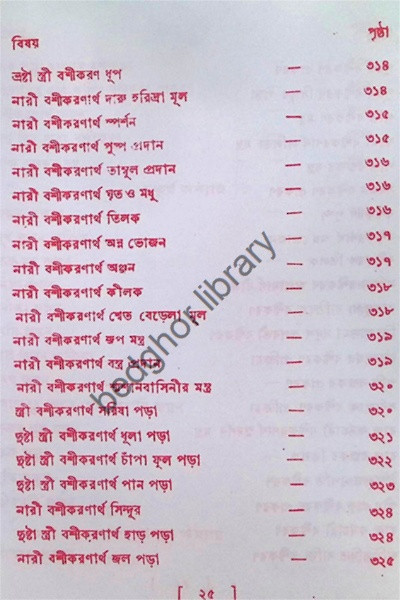 বিষয় পৃষ্ঠা
ভ্রষ্টা স্ত্রী বশীকরণ ধূপ — ৩১৪
নারী বশীকরণার্থ দারু হরিদ্রা মূল — ৩১৪
নারী বশীকরণার্থ স্পর্শন — ৩১৫
নারী বশীকরণার্থ পুষ্প প্রদান — ৩১৫
নারী বশীকরণার্থ তাম্বুল প্রদান — ৩১৬
নারী বশীকরণার্থ ঘৃত ও মধু — ৩১৬
নারী বশীকরণার্থ তিলক — ৩১৬
নারী বশীকরণার্থ অন্ন ভোজন — ৩১৭
নারী বশীকরণার্থ অঞ্জন — ৩১৭
নারী বশীকরণার্থ কীলক — ৩১৮
নারী বশীকরণার্থ শ্বেত বেড়েলা মূল — ৩১৮
নারী বশীকরণার্থ জপ মন্ত্র — ৩১৯
নারী বশীকরণার্থ বস্ত্র প্রদান — ৩১৯
নারী বশীকরণার্থ শ্মশানবাসিনীর মন্ত্র — ৩২০
স্ত্রী বশীকরণার্থ সরিষা পড়া — ৩২০
দুষ্টা স্ত্রী বশীকরণার্থ ধূলা পড়া — ৩২১
দুষ্টা স্ত্রী বশীকরণার্থ চাঁপা ফুল পড়া — ৩২২
দুষ্টা স্ত্রী বশীকরণার্থ পান পড়া — ৩২৩
নারী বশীকরণার্থ সিন্দুর — ৩২৪
দুষ্টা স্ত্রী বশীকরণার্থ হাড় পড়া — ৩২৪
নারী বশীকরণার্থ জল পড়া — ৩২৫
[ ২৫ ]
bedghor library